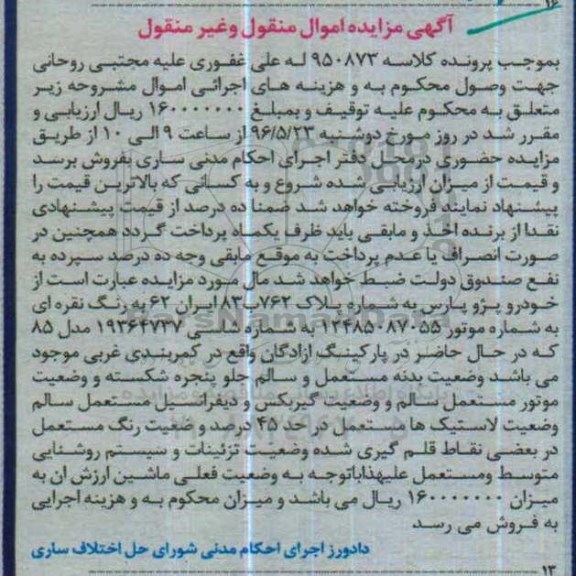 ۱۶
آگهی مزایده اموال منقول وغیر منقول
بموجب پرونده کلاسه ۹۵۰۸۷۳ له علی غفوری علیه مجتبی روحانی
جهت وصول محکوم به و هزینه های اجرائی اموال مشروحه زیر
متعلق به محکوم علیه توقیف و بمبلغ ۱۶۰۰۰۰۰۰۰ ریال ارزیابی و
مقرر شد در روز مورخ دوشنبه ۹۶/۵/۲۳ از ساعت ۹ الی ۱۰ از طریق
مزایده حضوری درمحل دفتر اجرای احکام مدنی ساری بفروش برسد
و قیمت از میزان ارزیابی شده شروع و به کسانی که بالاترین قیمت را
پیشنهاد نمایند فروخته خواهد شد ضمنا ده درصد از قیمت پیشنهادی
نقدا از برنده اخذ و مابقی باید ظرف یکماه پرداخت گردد همچنین در
صورت انصراف یا عدم پرداخت به موقع مابقی وجه ده درصد سپرده به
نفع صندوق دولت ضبط خواهد شد مال مورد مزایده عبارت است از
خودرو پژو پارس به شماره پلاک ۷۶۲ب۸۳ ایران ۶۲ به رنگ نقره ای
به شماره موتور ۱۲۴۸۵۰۸۷۰۵۵ به شماره شاسی ۱۹۳۶۴۷۳۷ مدل ۸۵
که در حال حاضر در پارکینگ ازادگان واقع در کمربندی غربی موجود
می باشد وضعیت بدنه مستعمل و سالم جلو پنجره شکسته و وضعیت
موتور مستعمل سالم و وضعیت گیربکس و دیفرانسیل مستعمل سالم
وضعیت لاستیک ها مستعمل در حد ۴۵ درصد و ضعیت رنگ مستعمل
در بعضی نقاط قلم گیری شده وضعیت تزئینات و سیستم روشنایی
متوسط ومستعمل علیهذاباتوجه به وضعیت فعلی ماشین ارزش ان به
میزان ۱۶۰۰۰۰۰۰۰ ریال می باشد و میزان محکوم به و هزینه اجرایی
به فروش می رسد
دادورز اجرای احکام مدنی شورای حل اختلاف ساری
۱۳